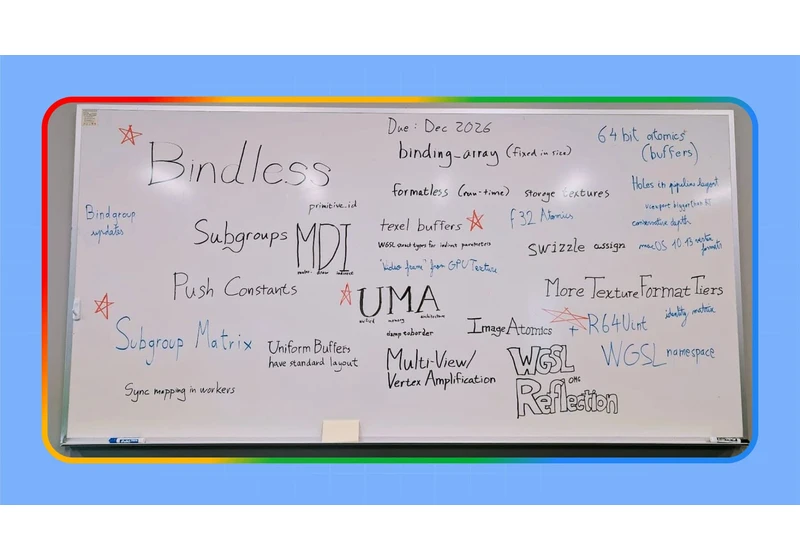 Due: Dec 2026
Bindless
binding_array (fixed in size)
64 bit atomics
(buffers)
primitive_id
formatless (run-time) storage textures
Holes in pipeline layout
Bindgroup
updates
Subgroups
MDI
multi draw indirect
texel buffers
f32 Atomics
conservative depth
WGSL struct types for indirect parameters
swizzle assign
macOS 10 13 vertex
formats
"Video frame" from GPUTexture
Push Constants
UMA
unified memory architecture
More Texture Format Tiers
clamp to border
Image Atomics
+ R64Uint
identity matrix
Subgroup Matrix
Uniform Buffers
have standard layout
Multi-View/
Vertex Amplification
WGSL
Reflection
WGSL namespace
Sync mapping in workers